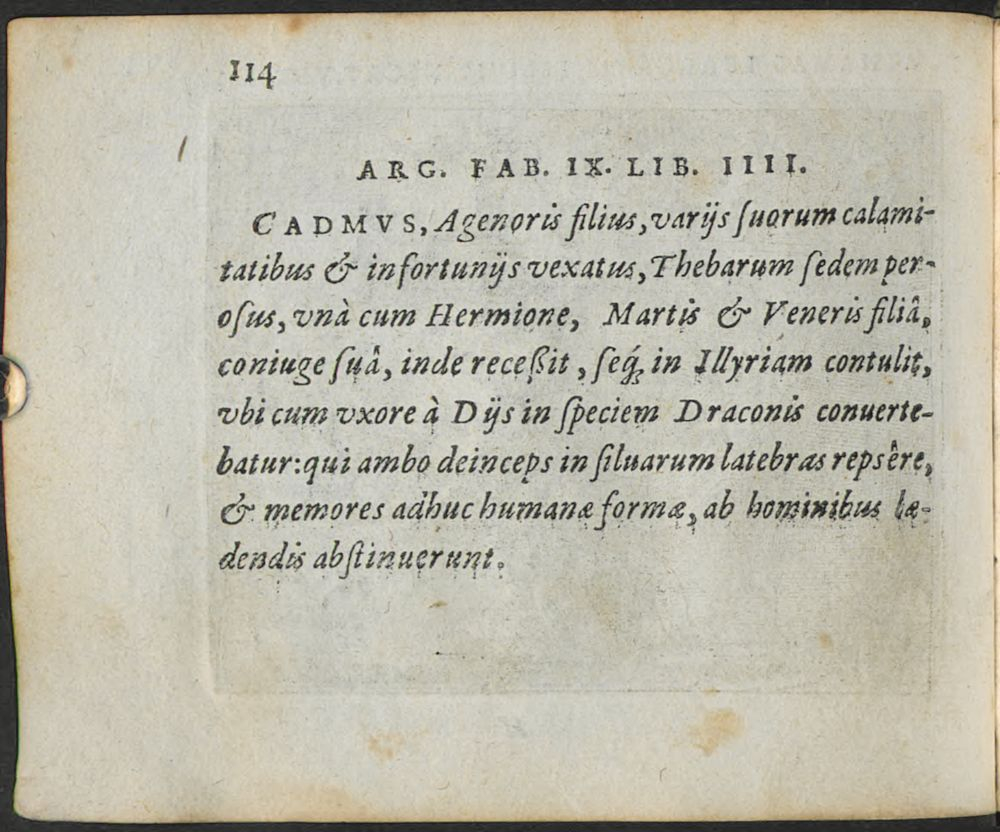 114
ARG. FAB. IX. LIB. IIII.
CADMVS, Agenoris filius, varijs ſuorum calami-
tatibus & infortunijs vexatus, Thebarum ſedem per-
oſus, vnà cum Hermione, Martis & Veneris filiâ,
coniuge ſuâ, inde receßit, ſeq́; in Illyriam contulit,
vbi cum vxore à Dijs in ſpeciem Draconis conuerte-
batur: qui ambo deinceps in ſiluarum latebras repsêre,
& memores adhuc humanæ formæ, ab hominibus læ-
dendis abſtinuerunt.